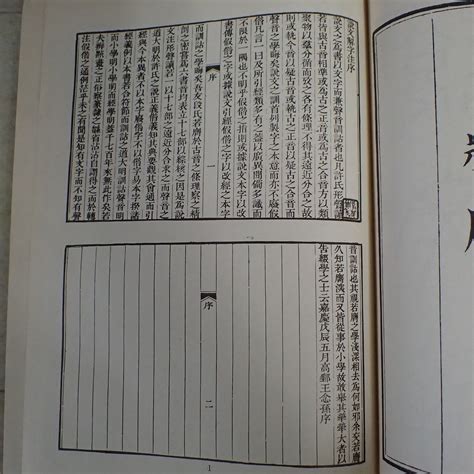 說文解字注序
說文之爲書以文字而兼聲音訓詁者也凡許氏形聲讀
若皆與古音相準或爲古之正音或爲古之合音方以類
聚物以羣分循而攷之各有條理不得其遠近分合之故
則或執今音以疑古音或執古之正音以疑古之合音而
聲音之學晦矣說文之訓首列製字之本意而亦不廢假
借凡言一曰及所引經類多有之蓋以廣異聞備多識而
不限於一隅也不明乎假借之指則或據說文本字以改
書傳假借之字或據說文引經假借之字以改經之本字
序
一
而訓詁之學晦矣吾友段氏若膺於古音之條理察之精
剖之密嘗爲六書音均表立十七部以綜核之因是爲說
文注形聲讀若一以十七部之遠近分合求之而聲音之
道大明於許氏之說正義借義知其典要觀其會通而引
經與今本異者不以本字廢借字不以借字易本字揆諸
經義例以本書若合符節而訓詁之道大明訓詁聲音明
而小學明小學明而經學明蓋千七百年來無此作矣若
夫辨點畫之正俗察篆隸之繁省沾沾自謂得之而於轉
注假借之通例茫乎未之有聞是知有文字而不知有聲
音訓詁也其視若膺之學淺深相去爲何如邪余交若膺
久知若膺深而又皆從事於小學故敢舉其犖犖大者以
告綴學之士云嘉慶戊辰五月高郵王念孫序
序
二
1